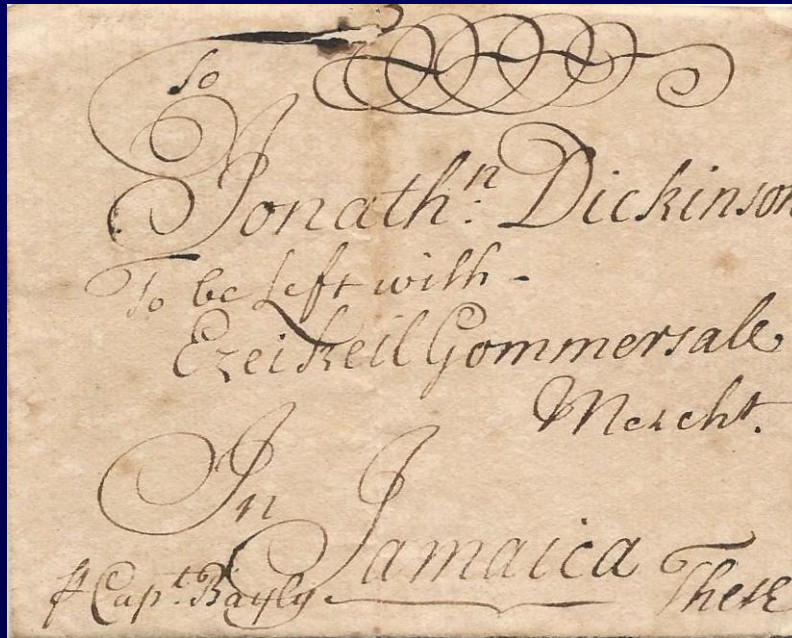 To
Jonath:n Dickinson
To be Left with -
Ezeikeil Gommersale
Mercht.
In Jamaica
Capt. Bayly There